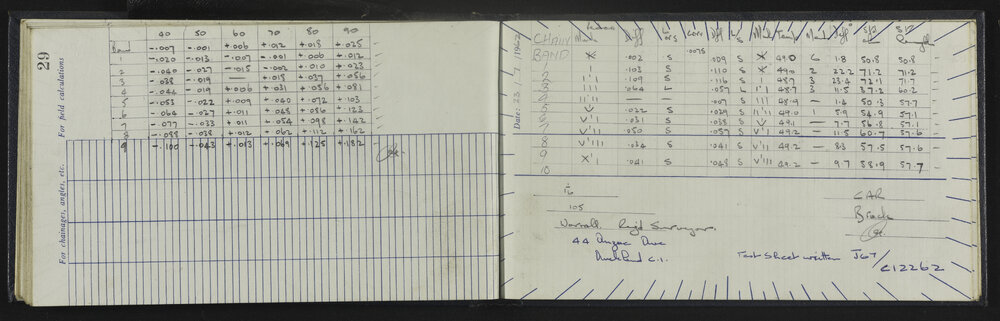 29
For field calculations
For chainages, angles, etc.
40 50 60 70 80 90
Band -.007 -.001 +.006 +.012 +.018 +.025
1 -.020 -.013 -.007 -.001 +.006 +.012
2 -.040 -.027 -.015 -.002 +.010 +.023
3 -.038 -.019 — +.018 +.037 +.056
4 -.044 -.019 +.006 +.031 +.056 +.081
5 -.053 -.022 +.009 +.040 +.072 +.103
6 -.064 -.027 +.011 +.048 +.086 +.123
7 -.077 -.033 +.011 +.054 +.098 +.142
8 -.088 -.038 +.012 +.062 +.112 +.162
9 -.100 -.043 +.013 +.069 +.125 +.182
Date: 23. 7. 1962
CHAIN Mark Diff Corr Diff Mark Temp Mark Diff
.0078
BAND X .002 S .009 S X 49.0 6 1.8 50.8 50.8
1 I .103 S .110 S X 49.0 2 22.2 71.2 71.2
2 I'I .109 S .116 S I 48.7 3 23.4 72.1 71.7
3 III .064 L .057 L I'I 48.7 3 11.5 37.2 60.2
4 II'II — .007 S III 48.9 - 1.4 50.3 57.7
5 V .022 S .029 S II'II 49.0 5.9 54.9 57.1
6 V'I .031 S .038 S V 49.1 - 7.7 56.8 57.1
7 V'II .050 S .057 S V'I 49.2 - 11.5 60.7 57.6
8 V'III .034 S .041 S V'II 49.2 - 8.3 57.5 57.6
9 X'I .041 S .048 S V'III 49.2 - 9.7 58.9 57.7
10
105
Worrall, Reg'd Surveyor,
44 Anzac Ave
Auckland C.1.
CAR
Brack
Test Sheet written JGT/C12262